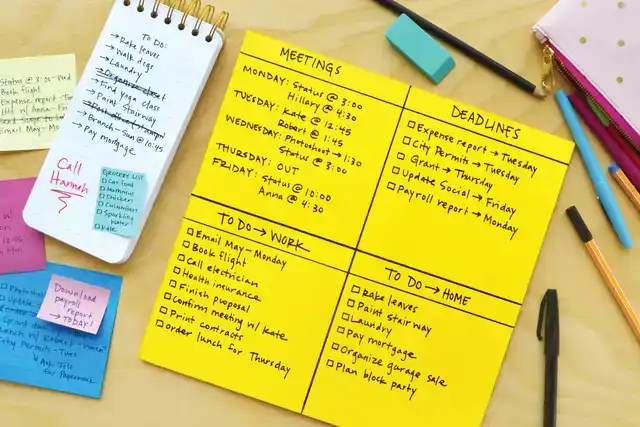 Status @ 3:00
Book flight
Expense report
Email May - Mon
TO DO:
→ Rake leaves
→ Walk dogs
→ Laundry
→ Organize closet
→ Find yoga class
→ Paint Stairway
→ Post office (stamps)
→ Branch - Sun @ 10:45
→ Pay mortgage
Call
Hannah
GROCERY LIST
□ Cat food
□ Hummus
□ Chicken
□ Cucumber
□ Sparkling
Water
□ Kale
12:45
Download
payroll
report
→ TODAY!
City Permits - Tues
↳ Ask
for
Paperwork
MEETINGS
MONDAY: Status @ 3:00
Hillary @ 4:30
TUESDAY: Kate @ 12:45
Robert @ 1:45
WEDNESDAY: Photoshoot → 1:30
Status @ 3:00
THURSDAY: OUT
FRIDAY: Status @ 10:00
Anna @ 4:30
DEADLINES
□ Expense report → Tuesday
□ City Permits → Tuesday
□ Grant → Thursday
□ Update Social → Friday
□ Payroll report → Monday
TO DO → WORK
□ Email May - Monday
□ Book flight
□ Call electrician
□ Health insurance
□ Finish proposal
□ Confirm meeting w/ Kate
□ Print contracts
□ Order lunch for Thursday
TO DO → HOME
□ Rake leaves
□ Paint Stairway
□ Laundry
□ Pay mortgage
□ Organize garage sale
□ Plan block party